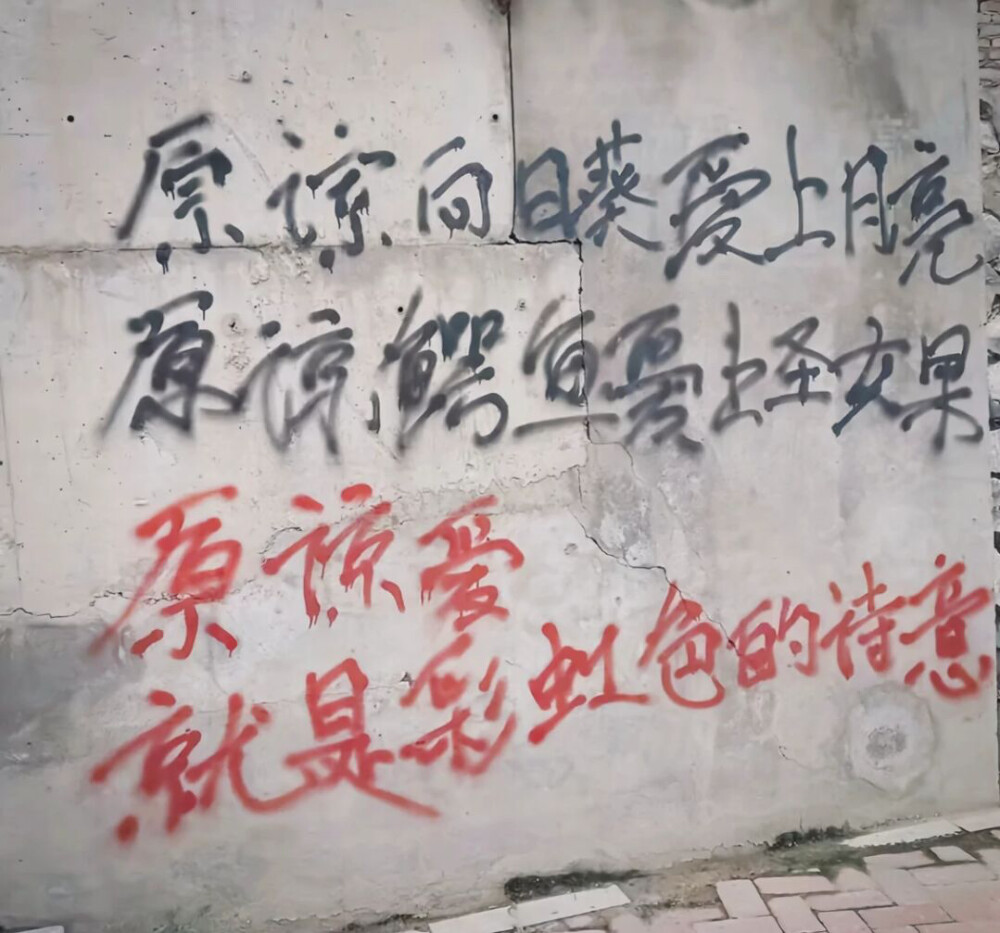 原谅向日葵爱上月亮
原谅鳄鱼爱上圣女果
原谅爱
就是彩虹色的诗意